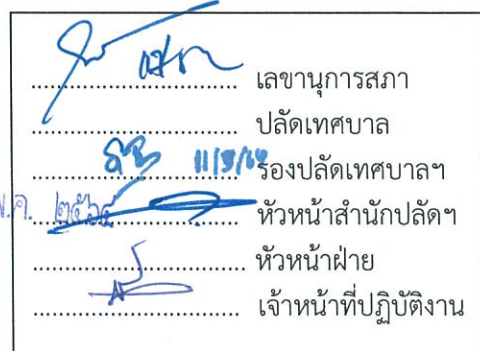 เลขานุการสภา
ปลัดเทศบาล
รองปลัดเทศบาลฯ
พ.ค. ๒๕๖๔ หัวหน้าสำนักปลัดฯ
หัวหน้าฝ่าย
เจ้าหน้าที่ปฏิบัติงาน